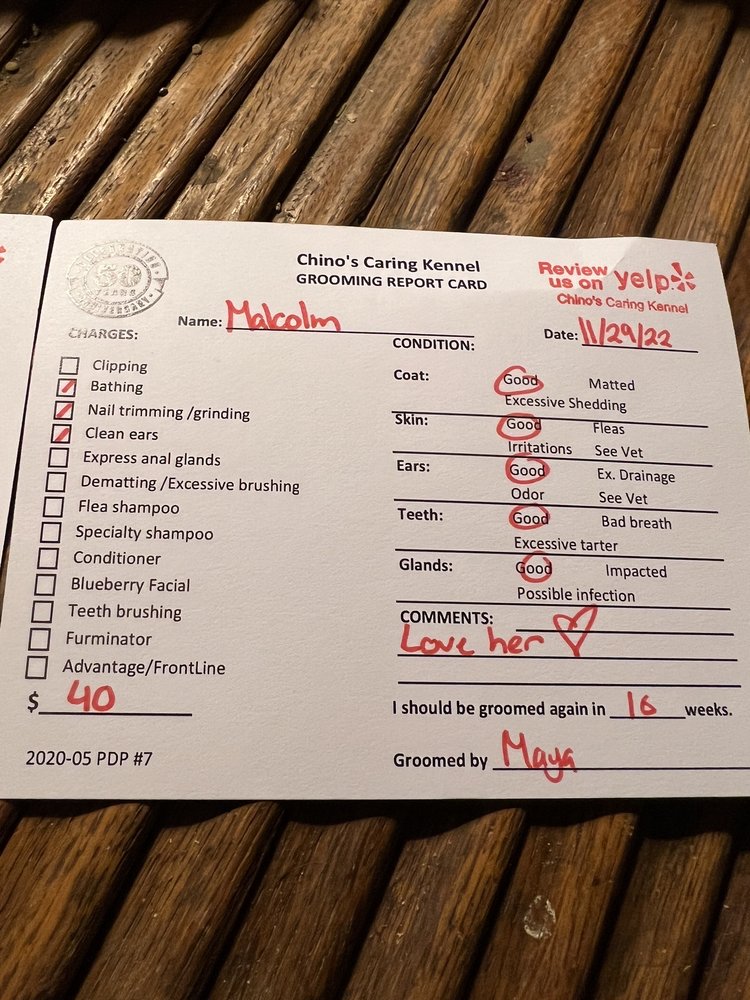 Chino's Caring Kennel
GROOMING REPORT CARD
Review
us on yelp
Chino's Caring Kennel
50
YEARS
ANNIVERSARY
Name: Malcolm
Date: 11/29/22
CHARGES:
Clipping
Bathing
Nail trimming /grinding
Clean ears
Express anal glands
Dematting /Excessive brushing
Flea shampoo
Specialty shampoo
Conditioner
Blueberry Facial
Teeth brushing
Furminator
Advantage/FrontLine
$ 40
2020-05 PDP #7
CONDITION:
Coat: Good Matted
Excessive Shedding
Skin: Good Fleas
Irritations See Vet
Ears: Good Ex. Drainage
Odor See Vet
Teeth: Good Bad breath
Excessive tarter
Glands: Good Impacted
Possible infection
COMMENTS:
Love her
I should be groomed again in 16 weeks.
Groomed by Maya